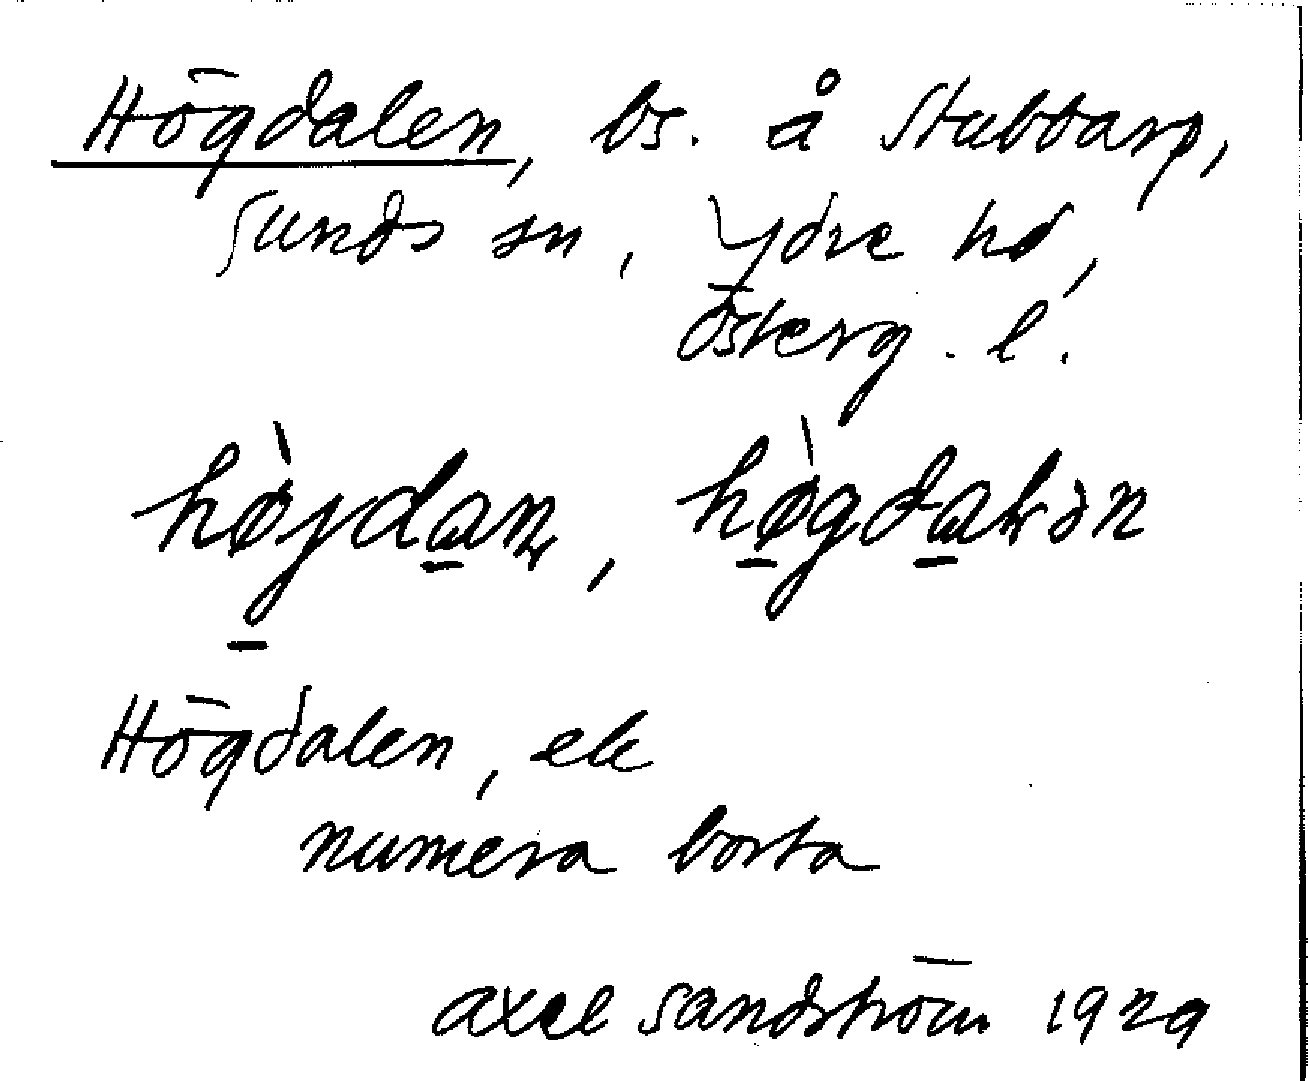 Högdalen, bs. å Stubbarp,
Sunds sn, Ydre hd,
Österg. l.
hø̀jdan, hø̀gdalən
Högdalen, ek
numera borta
Axel Sandström 1929